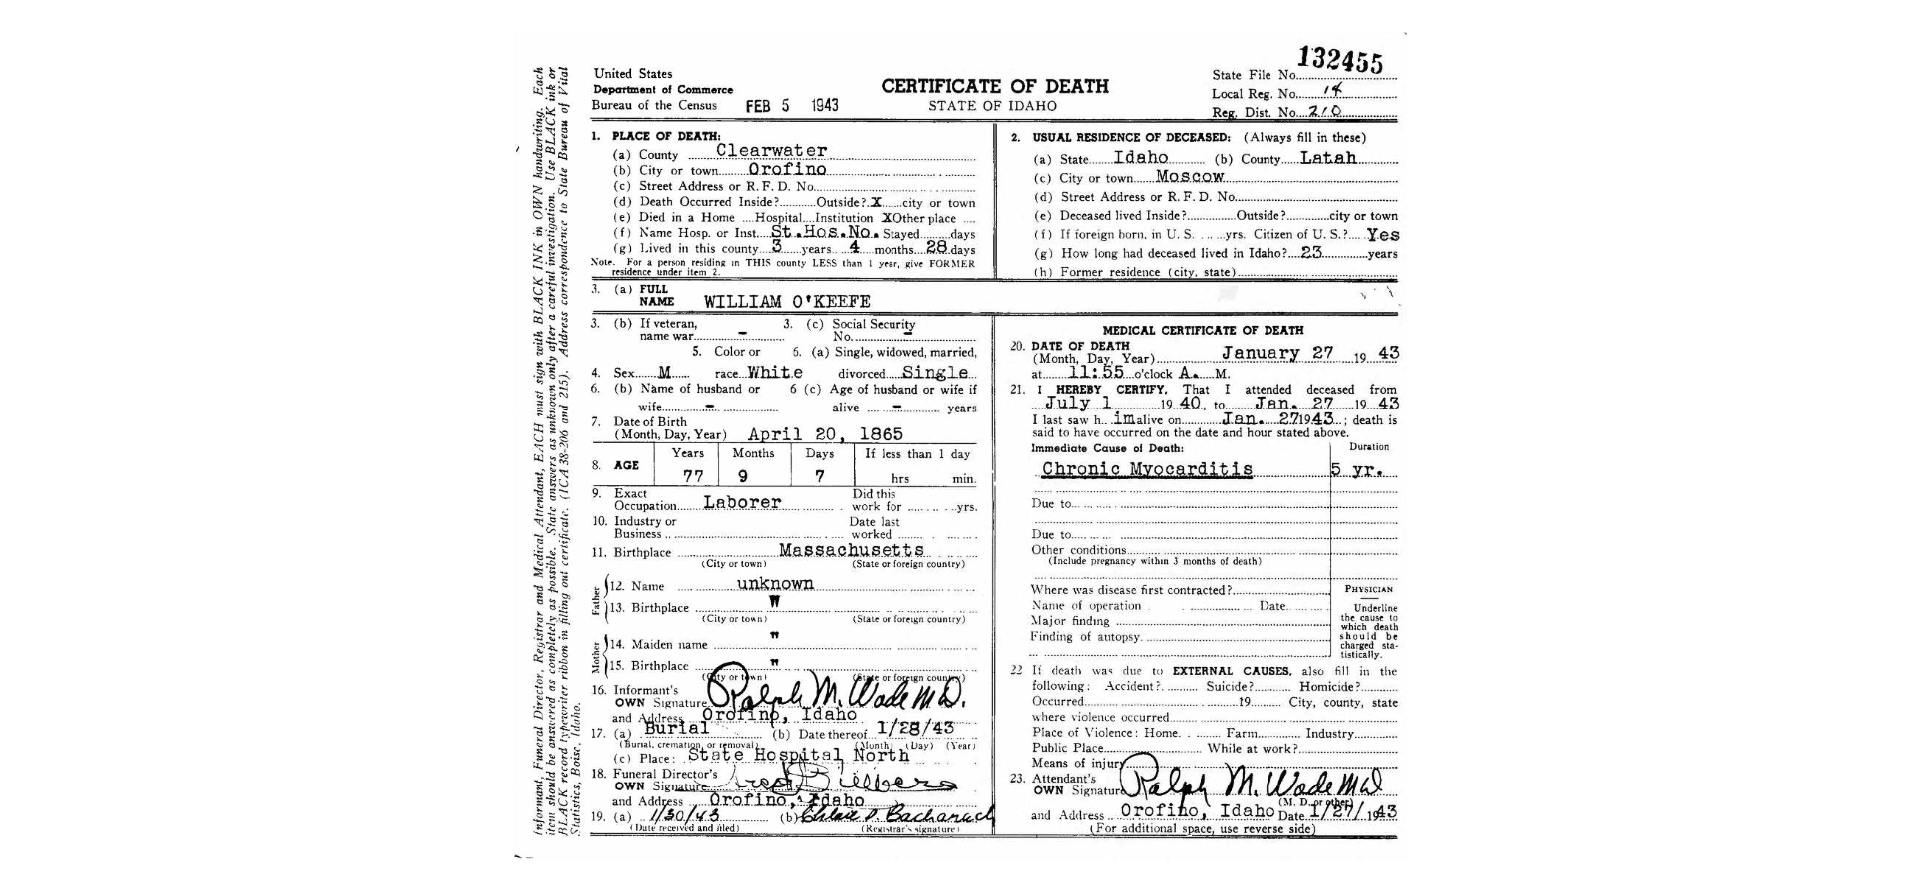 132455
United States
Department of Commerce
Bureau of the Census FEB 5 1943
CERTIFICATE OF DEATH
STATE OF IDAHO
State File No.
Local Reg. No. 14
Reg. Dist. No. 210
Informant, Funeral Director, Registrar and Medical Attendant, EACH must sign with BLACK INK in OWN handwriting. Each
item should be answered as completely as possible. State answers as unknown only after a careful investigation. Use BLACK ink or
BLACK record typewriter ribbon in filling out certificate. (ICA 38-206 and 215). Address correspondence to State Bureau of Vital
Statistics, Boise, Idaho.
1. PLACE OF DEATH:
(a) County Clearwater
(b) City or town Orofino
(c) Street Address or R. F. D. No.
(d) Death Occurred Inside? Outside? X city or town
(e) Died in a Home Hospital Institution X Other place
(f) Name Hosp. or Inst. St.Hos.No. Stayed days
(g) Lived in this county 3 years 4 months 28 days
Note. For a person residing in THIS county LESS than 1 year, give FORMER
residence under item 2.
2. USUAL RESIDENCE OF DECEASED: (Always fill in these)
(a) State Idaho (b) County Latah
(c) City or town Moscow
(d) Street Address or R. F. D. No.
(e) Deceased lived Inside? Outside? city or town
(f) If foreign born, in U. S. yrs. Citizen of U. S.? Yes
(g) How long had deceased lived in Idaho? 23 years
(h) Former residence (city, state)
3. (a) FULL
NAME WILLIAM O'KEEFE
3. (b) If veteran, 3. (c) Social Security
name war - No. -
5. Color or 6. (a) Single, widowed, married,
4. Sex M race White divorced Single
6. (b) Name of husband or 6 (c) Age of husband or wife if
wife - alive - years
7. Date of Birth
(Month, Day, Year) April 20, 1865
Years Months Days If less than 1 day
8. AGE 77 9 7 hrs min.
9. Exact Did this
Occupation Laborer work for yrs.
10. Industry or Date last
Business worked
11. Birthplace Massachusetts
(City or town) (State or foreign country)
Father
12. Name unknown
13. Birthplace "
(City or town) (State or foreign country)
Mother
14. Maiden name "
15. Birthplace "
(City or town) (State or foreign country)
16. Informant's
OWN Signature Ralph M. Wade M.D.
and Address Orofino, Idaho
17. (a) Burial (b) Date thereof 1/28/43
(Burial, cremation, or removal) (Month) (Day) (Year)
(c) Place: State Hospital North
18. Funeral Director's
OWN Signature
and Address Orofino, Idaho
19. (a) 1/30/43 (b)
(Date received and filed) (Registrar's signature)
MEDICAL CERTIFICATE OF DEATH
20. DATE OF DEATH
(Month, Day, Year) January 27 19 43
at 11:55 o'clock A. M.
21. I HEREBY CERTIFY, That I attended deceased from
July 1 19 40, to Jan. 27 19 43
I last saw h im alive on Jan. 27 1943; death is
said to have occurred on the date and hour stated above.
Immediate Cause of Death: Duration
Chronic Myocarditis 5 yr.
Due to
Due to
Other conditions
(Include pregnancy within 3 months of death)
Where was disease first contracted?
Name of operation Date
Major finding
Finding of autopsy.
PHYSICIAN
Underline
the cause to
which death
should be
charged sta-
tistically.
22 If death was due to EXTERNAL CAUSES, also fill in the
following: Accident? Suicide? Homicide?
Occurred 19 City, county, state
where violence occurred
Place of Violence: Home Farm Industry
Public Place While at work?
Means of injury
23. Attendant's
OWN Signature Ralph M. Wade MD
(M. D. or other)
and Address Orofino, Idaho Date 1/27/1943
(For additional space, use reverse side)